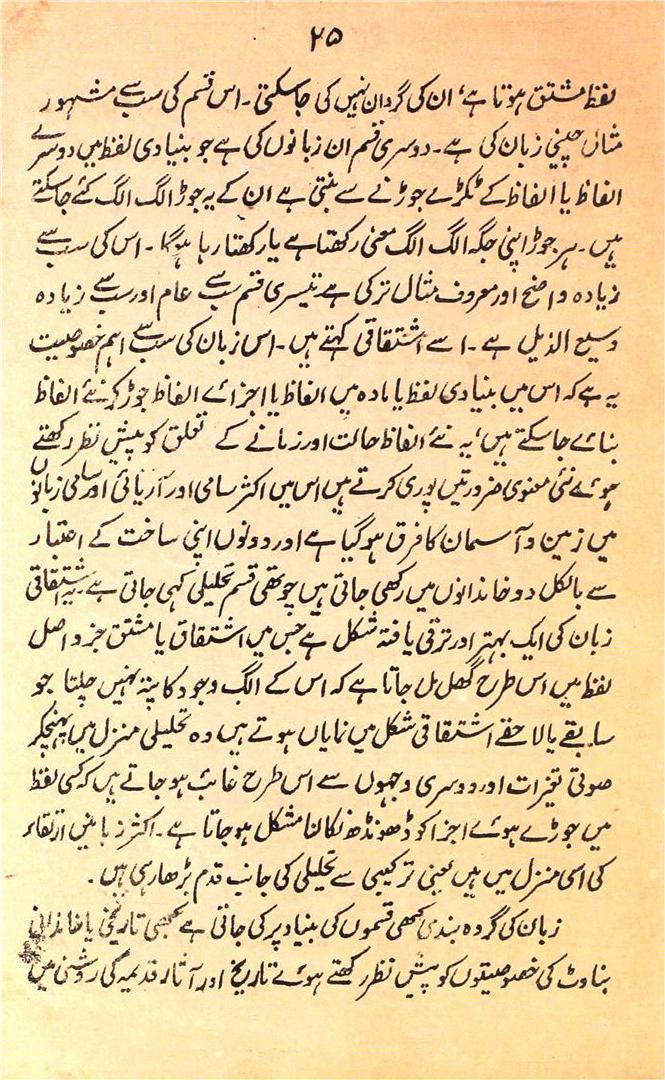 ۲۵
لفظ مشتق ہوتا ہے، ان کی گردان نہیں کی جا سکتی۔ اس قسم کی سب سے مشہور
مثال چینی زبان کی ہے۔ دوسری قسم ان زبانوں کی ہے جو بنیادی لفظ میں دوسرے
الفاظ یا الفاظ کے ٹکڑے جوڑنے سے بنتی ہے ان کے یہ جوڑ الگ الگ کئے جا سکتے
ہیں۔ ہر جوڑ اپنی جگہ الگ الگ معنی رکھتا ہے یا رکھتا رہا ہوگا۔ اس کی سب سے
زیادہ واضح اور معروف مثال ترکی ہے تیسری قسم سب سے عام اور سب سے زیادہ
وسیع الذیل ہے۔ اسے اشتقاقی کہتے ہیں۔ اس زبان کی سب سے اہم خصوصیت
یہ ہے کہ اس میں بنیادی لفظ یا مادہ میں الفاظ یا اجزائے الفاظ جوڑ کر نئے الفاظ
بنائے جا سکتے ہیں، یہ نئے الفاظ حالت اور زمانے کے تعلق کو پیش نظر رکھتے
ہوئے نئی معنوی ضرورتیں پوری کرتے ہیں اس میں اکثر سامی اور آریائی اور سامی زبانوں
میں زمین و آسمان کا فرق ہو گیا ہے اور دونوں اپنی ساخت کے اعتبار
سے بالکل دو خاندانوں میں رکھی جاتی ہیں چوتھی قسم تحلیلی کہی جاتی ہے۔ یہ اشتقاقی
زبان کی ایک بہتر اور ترقی یافتہ شکل ہے جس میں اشتقاق یا مشتق جزو اصل
لفظ میں اس طرح گھل مل جاتا ہے کہ اس کے الگ وجود کا پتہ نہیں چلتا جو
سابقے یا لاحقے اشتقاقی شکل میں نمایاں ہوتے ہیں وہ تحلیلی منزل میں پہنچکر
صوتی تغیرات اور دوسری وجہوں سے اس طرح غائب ہو جاتے ہیں کہ کسی لفظ
میں جوڑے ہوئے اجزا کو ڈھونڈھ نکالنا مشکل ہو جاتا ہے۔ اکثر زبانیں ارتقاء
کی اسی منزل میں ہیں یعنی ترکیبی سے تحلیلی کی جانب قدم بڑھا رہی ہیں۔
زبان کی گروہ بندی کبھی قسموں کی بنیاد پر کی جاتی ہے کبھی تاریخی یا خاندانی
بناوٹ کی خصوصیتوں کو پیش نظر رکھتے ہوئے تاریخ اور آثار قدیمہ کی روشنی میں